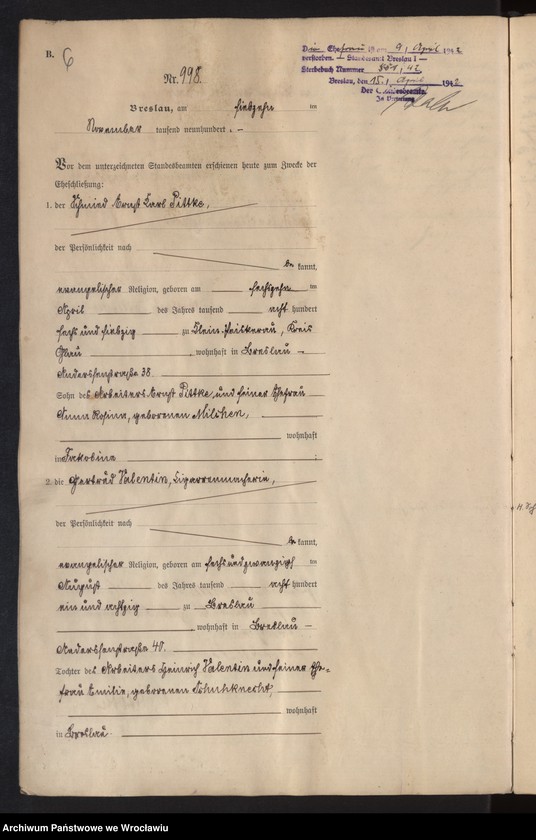 B. 6
Nr. 998.
Die Ehefrau ist am 9. April 1942
verstorben. Standesamt Breslau I
Sterbebuch Nummer 42
Breslau, den 15. April 1942
Der Standesbeamte.
In Vertretung
Breslau, am siebzehn im
November tausend neunhundert . –
Vor dem unterzeichneten Standesbeamten erschienen heute zum Zwecke der
Eheschließung:
1. der Schmied Ernst Karl Pittke,
der Persönlichkeit nach
be kannt,
evangelischer Religion, geboren am sechzehn im
April des Jahres tausend acht hundert
sechs und siebzig zu Klein-Peiskerau, Kreis
Ohlau , wohnhaft in Breslau –
Anderssenstraße 38.
Sohn des Arbeiters Ernst Pittke und seiner Ehefrau
Anna Rosina, geborenen Milchen,
wohnhaft
in Jakobine .
2. die Gertrud Valentin, Cigarrenmacherin,
der Persönlichkeit nach
be kannt,
evangelischer Religion, geboren am sechsundzwanzigsten im
August des Jahres tausend acht hundert
ein und achtzig zu Breslau
, wohnhaft in Breslau –
Anderssenstraße 45.
Tochter des Arbeiters Heinrich Valentin und seiner Ehe=
frau Emilie, geborenen Schuhknecht,
wohnhaft
in Breslau
Archiwum Państwowe we Wrocławiu